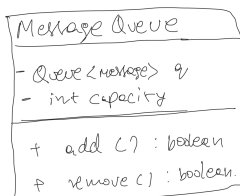 Message Queue
- Queue<message> q
- int capacity
+ add () : boolean
+ remove () : boolean.